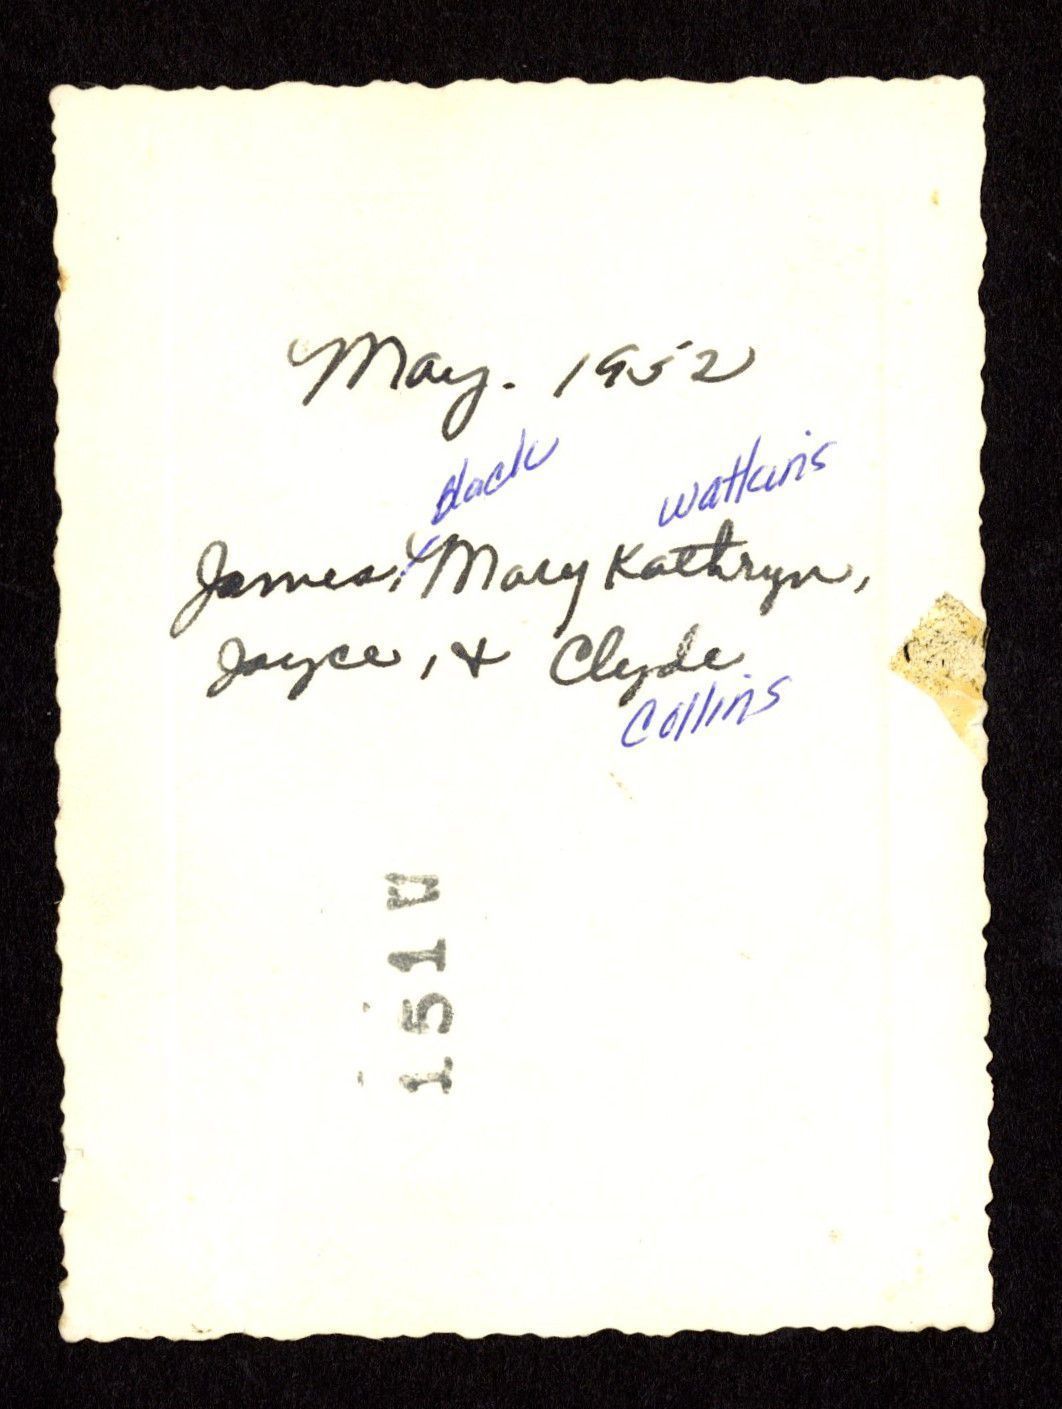 May. 1952
Black Watkins
James, Mary Kathryn,
Joyce, & Clyde
Collins
151 V